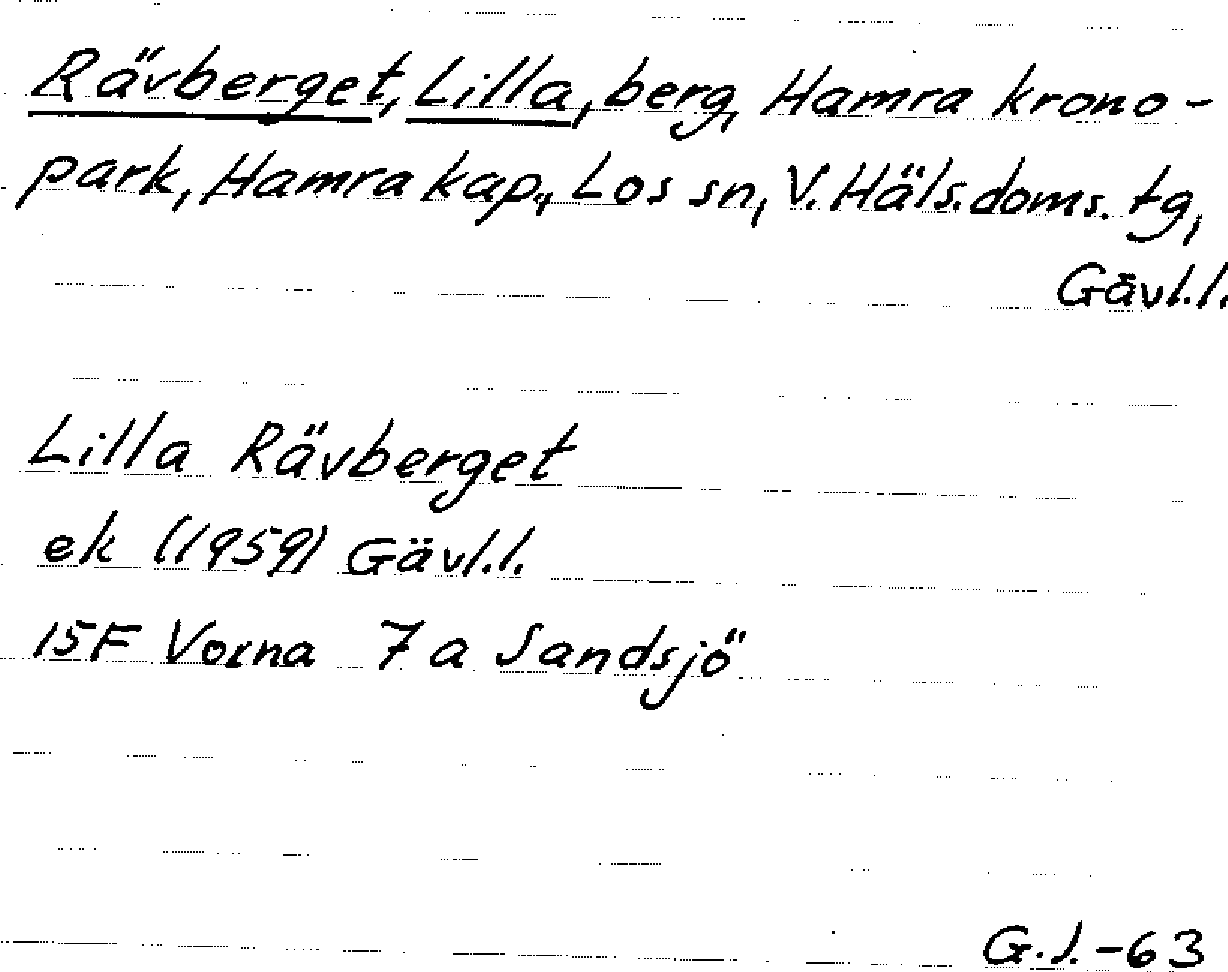 Rävberget, Lilla, berg, Hamra krono-
park, Hamra kap., Los sn, V. Häls. doms. tg,
Gävl.l.
Lilla Rävberget
ek (1959) Gävl.l.
15F Voxna 7a Sandsjö
G.J.-63